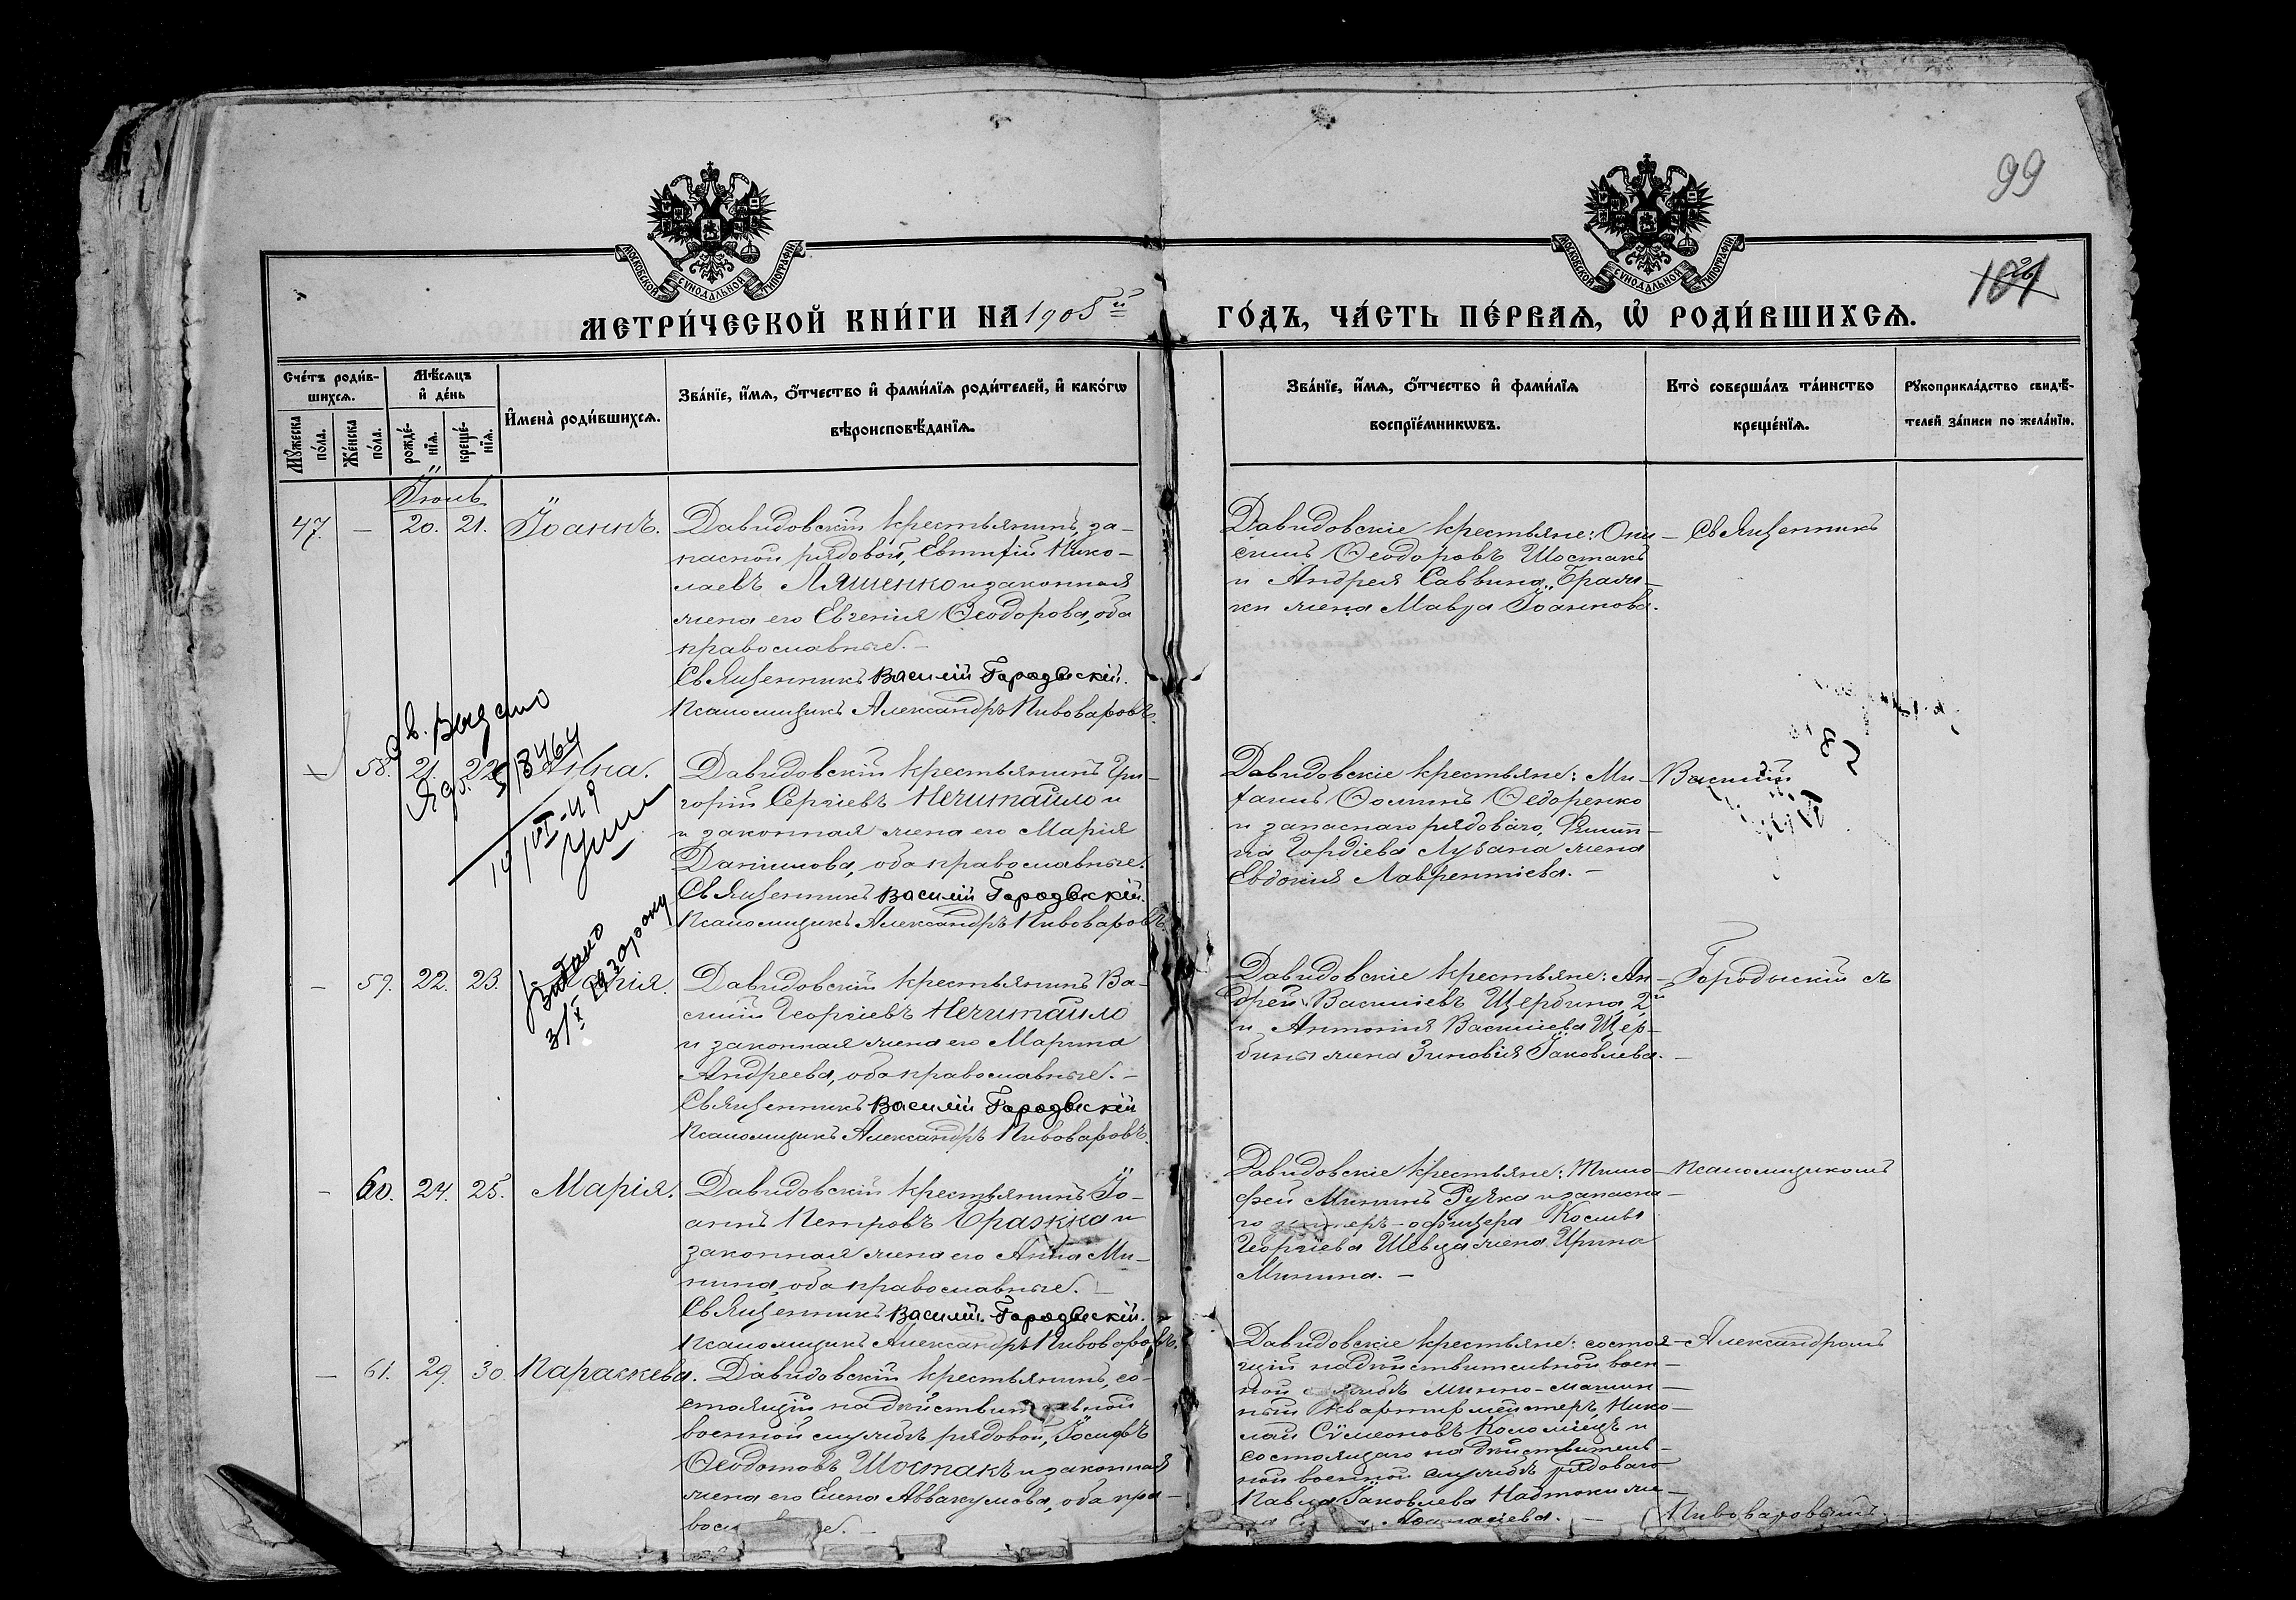 99
101
МОСКОВСКОЙ СУНОДАЛЬНОЙ ТИПОГРАФІИ
МОСКОВСКОЙ СУНОДАЛЬНОЙ ТИПОГРАФІИ
МЕТРИ́ЧЕСКОЙ КНИ́ГИ НА 1905й
ГО́ДЪ, ЧА́СТЬ ПЕ́РВАѦ, Ѡ҆ РОДИ́ВШИХСѦ.
Сче́тъ роди́в-
шихсѧ.
Мꙋ́жеска по́ла.
Же́нска по́ла.
Мѣ́сѧцъ и҆ де́нь
рожде́-
нїѧ.
креще́-
нїѧ.
И҆мена̀ роди́вшихсѧ.
Зва́нїе, и҆́мѧ, ѻ҆́тчество и҆ фами́лїѧ роди́телей, и҆ како́гѡ
вѣроисповѣ́данїѧ.
Зва́нїе, и҆́мѧ, ѻ҆́тчество и҆ фами́лїѧ
воспрїе́мникѡвъ.
Кто̀ соверша́лъ та́инство
креще́нїѧ.
Рꙋкоприкла́дство свидѣ́-
телей за́писи по жела́нїю.
Іюль
47. – 20. 21. Іоаннъ.
Давидовскій крестьянинъ, за-
пасной рядовой, Евтифій Нико-
лаевъ Ляшенко и законная
жена его Евгенія Ѳеодорова, оба
православные. –
Священникъ Василій Городыскій.
Псаломщикъ Александръ Пивоваровъ.
Давидовскіе крестьяне: Они-
симъ Ѳеодоровъ Шостакъ
и Андрея Саввина Браж-
ки жена Мавра Іоаннова.
Священникъ
св. Выдано
518464
– 58. 21. 22. Анна.
Давидовскій крестьянинъ Гри-
горій Сергіевъ Нечитайло и
и законная жена его Марія
Даніилова, оба православные.
Священникъ Василій Городыскій.
Псаломщикъ Александръ Пивоваровъ.
Давидовскіе крестьяне: Ми-
Ѳоминъ Ѳедоренко
и запаснаго рядоваго, Филип-
па Гордіева Лузана жена
Евдокія Лаврентіева. –
Василій
Видано
3/X 1930 року
– 59. 22. 23.
Давидовскій крестьянинъ Ва-
силій Георгіевъ Нечитайло
и законная жена его Марина
Андреева, оба православные. –
Священникъ Василій Городыскій
Псаломщикъ Александръ Пивоваровъ.
Давидовскіе крестьяне: Ан-
дрей Василіевъ Щербина 2й
и Антонія Василіева Щер-
бины жена Зиновія Іаковлева. –
Городыскій съ
– 60. 24. 25. Марія.
Давидовскій крестьянинъ Іо-
аннъ Петровъ Бражка и
законная жена его Анна Ми-
нина, оба православные. –
Священникъ Василій Городыскій.
Псаломщикъ Александръ Пивоваровъ.
Давидовскіе крестьяне: Тимо-
фей Мининъ Ручка и запасна-
го унтеръ-офицера Космы
Георгіева Шевца жена Ирина
Минина. –
псаломщикомъ
– 61. 29. 30. Параскева.
Давидовскій крестьянинъ, со-
стоящій на дѣйствительной
военной службѣ рядовой, Іосифъ
Ѳеодотовъ Шостакъ и законная
жена его Елена Аввакумова, оба пра-
Давидовскіе крестьяне: состоя-
щій на дѣйствительной воен-
ной службѣ минно-машин-
ный квартирмейстеръ, Нико-
лай Сѵмеоновъ Коломіецъ и
состоящаго на дѣйствитель-
ной военной службѣ рядоваго
Павла Іаковлева Надточія же-
на
Александромъ
Пивоваровымъ.